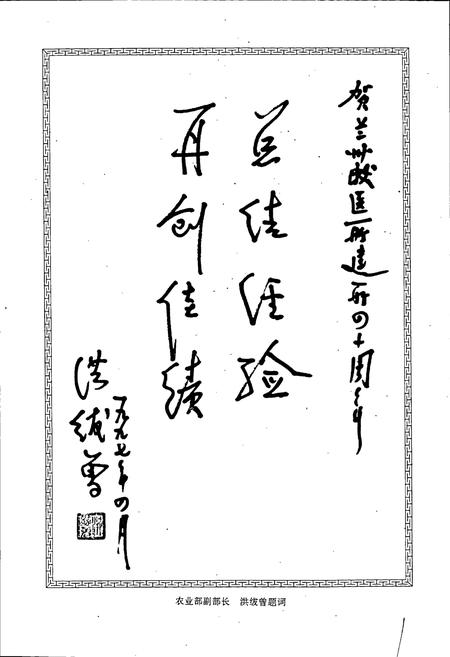 贺兰州兽医所建所四十周年
总结经验
再创佳绩
洪绂曾
一九九七年四月
农业部副部长 洪绂曾题词